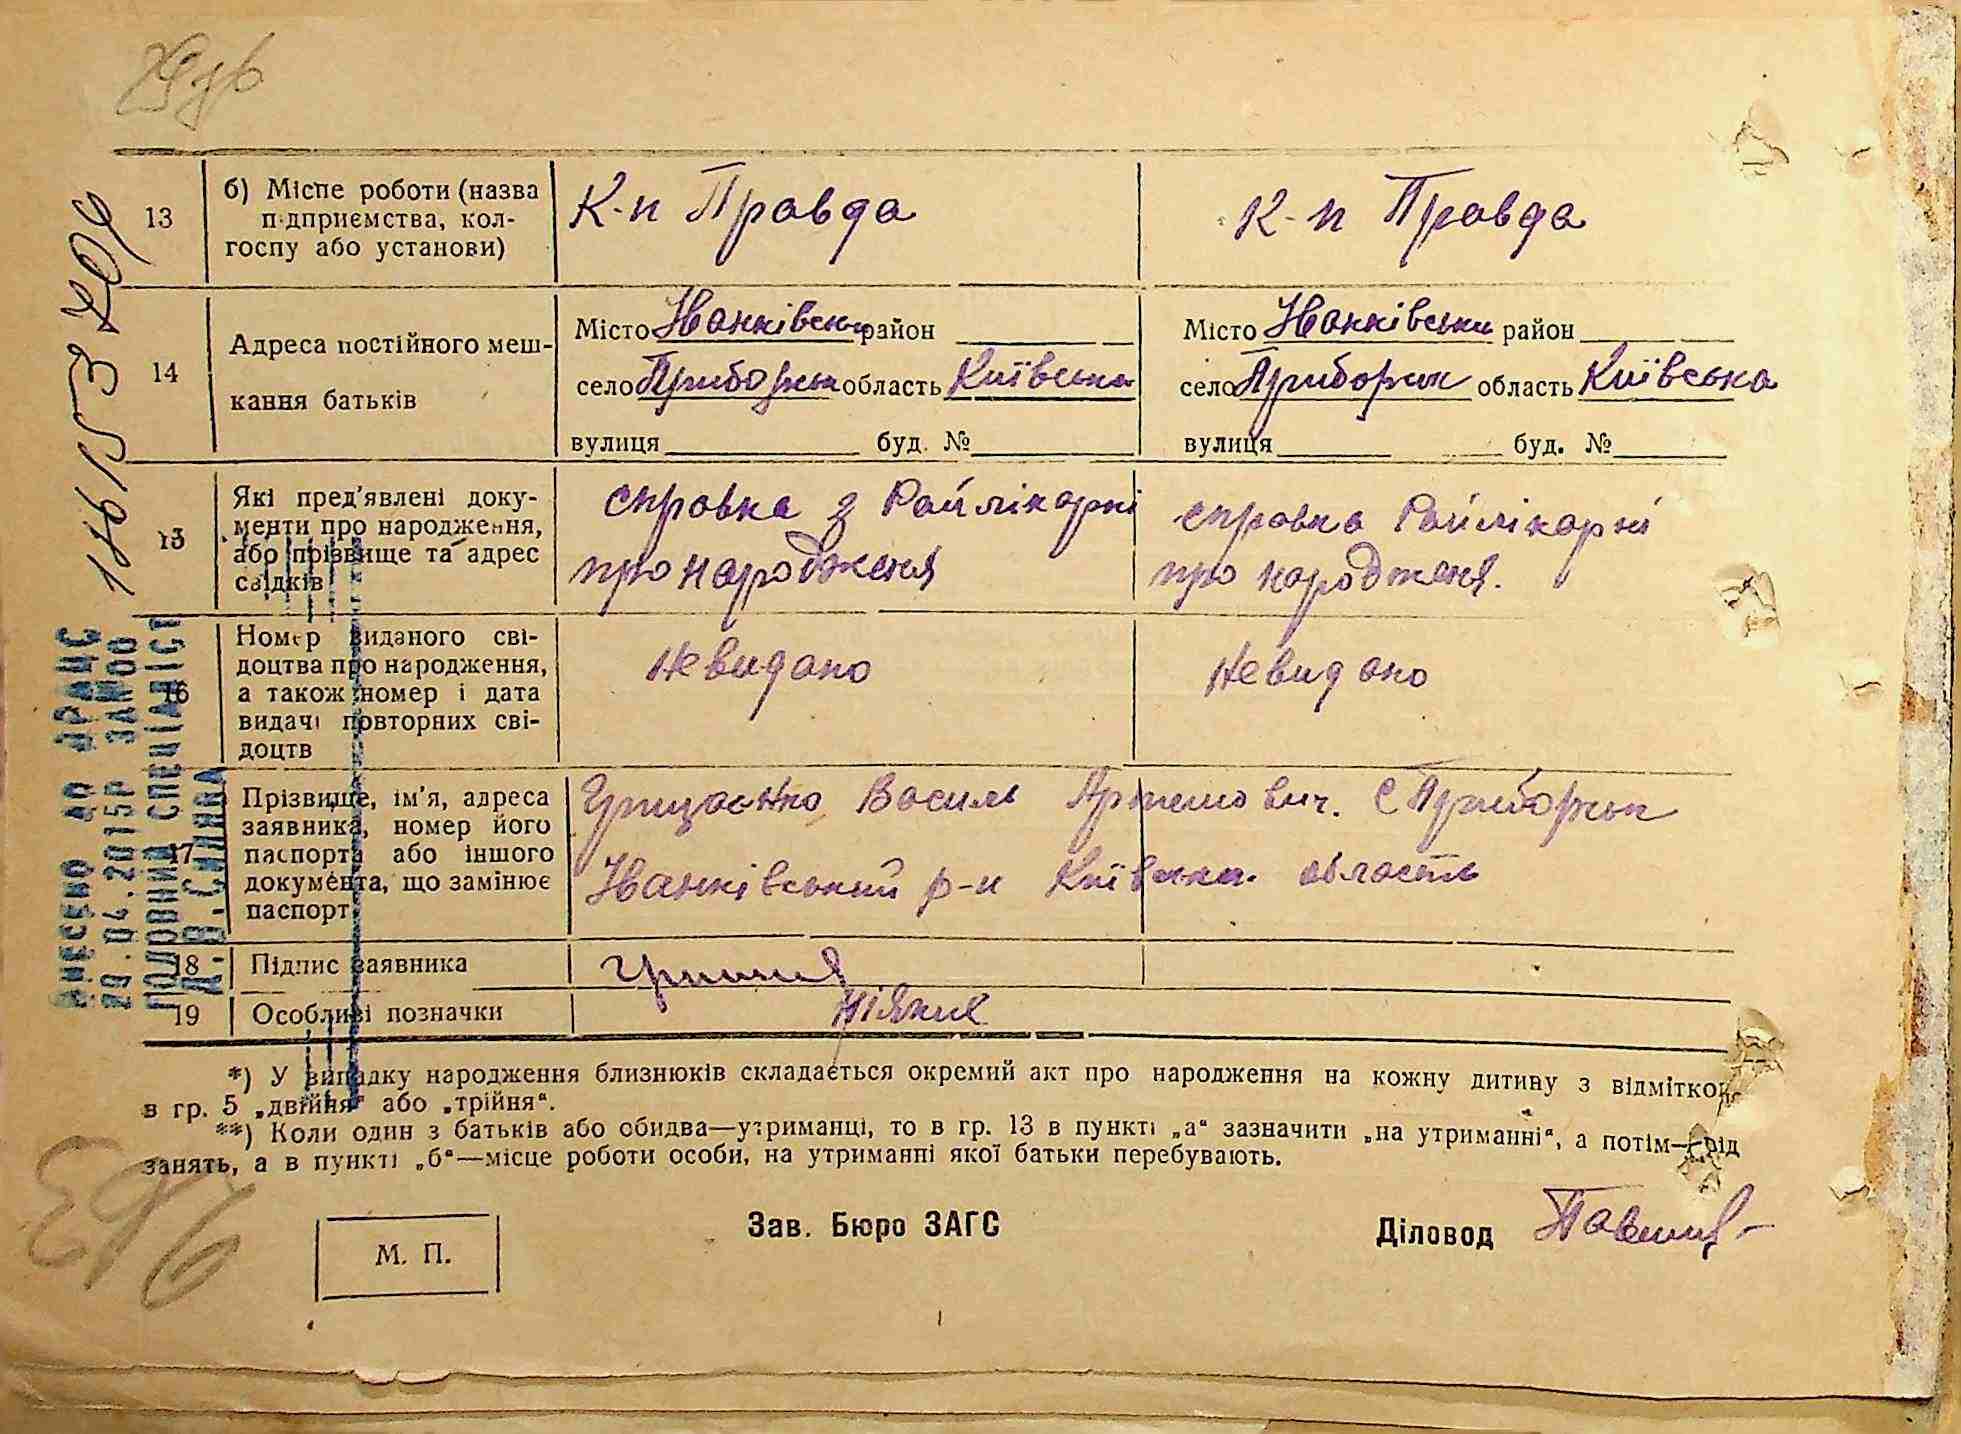 13 б) Місце роботи (назва підприємства, кол-
госпу або установи)
К-п Правда К-п Правда
14 Адреса постійного меш-
кання батьків
Місто Іванківськи район Місто Іванківськи район
село Приборськ область Київська село Приборськ область Київська
вулиця буд. № вулиця буд. №
15 Які пред'явлені доку-
менти про народження,
або прізвище та адрес
свідків
справка з Райлікарні справка Райлікарні
про народженя про народженя.
16 Номер виданого сві-
доцтва про народження,
а також номер і дата
видачі повторних сві-
доцтв
Невидано Невидано
17 Прізвище, ім'я, адреса
заявника, номер його
паспорта або іншого
документа, що замінює
паспорт
Василь Артемович. с Приборськ
Іванківський р-н Київська область
18 Підпис заявника
19 Особливі позначки
ніяких
*) У випадку народження близнюків складається окремий акт про народження на кожну дитину з відміткою
в гр. 5 „двійня“ або „трійня“.
**) Коли один з батьків або обидва—утриманці, то в гр. 13 в пункті „а“ зазначити „на утриманні“, а потім—рід
занять, а в пункті „б“—місце роботи особи, на утриманні якої батьки перебувають.
М. П.
Зав. Бюро ЗАГС
Діловод
ВНЕСЕНО ДО ДРАЦС
29.04.2015Р ЗАМ00
ГОЛОВНИЙ СПЕЦІАЛІСТ